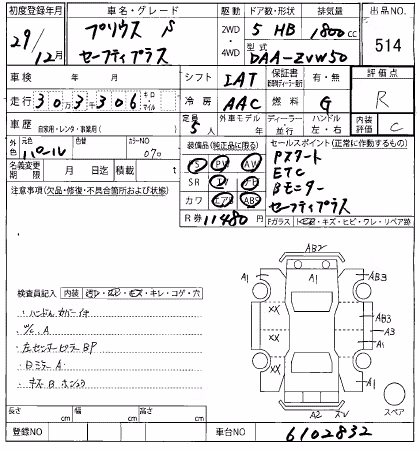 初度登録年月 車名・グレード 駆動 ドア数・形状 排気量 出品NO.
29/12月 プリウス S 2WD・4WD 5 HB 1800cc 514
セーフティプラス 型式 DAA-ZVW50
車検 年 月 シフト IAT 保証書 有・無 評価点
走行 303306 キロ・マイル 冷房 AAC 燃料 G R
車歴 自家用・レンタ・事業用( ) 定員 5人 外車モデル 年 ディーラー・並行 ハンドル 左・右 内装評価 C
外色 元色 パール 色替 カラーNO 070
装備品(純正品に限る) セールスポイント(正常に作動するもの)
名義変更期限 月 日迄 積載 t
PS PW AW
SR TV ナビ
カワ エアB ABS
Pスタート
ETC
Bモニター
セーフティプラス
注意事項(欠品・修復・不具合箇所および状態)
R券 11480円
Fガラス キズ・ヒビ・ワレ・リペア跡
AB2
A1 A1 AB3
XX XX AB3
A3
XX XX A1
A2
スペア
検査員記入 内装 汚レ・コゲ・キズ・キレ・コゲ・穴
ハンドルカバーイキ
A
左センターピラーBP
Bミラー A
キズ B
長さ cm 幅 cm 高さ cm
登録NO 車台NO 6102832